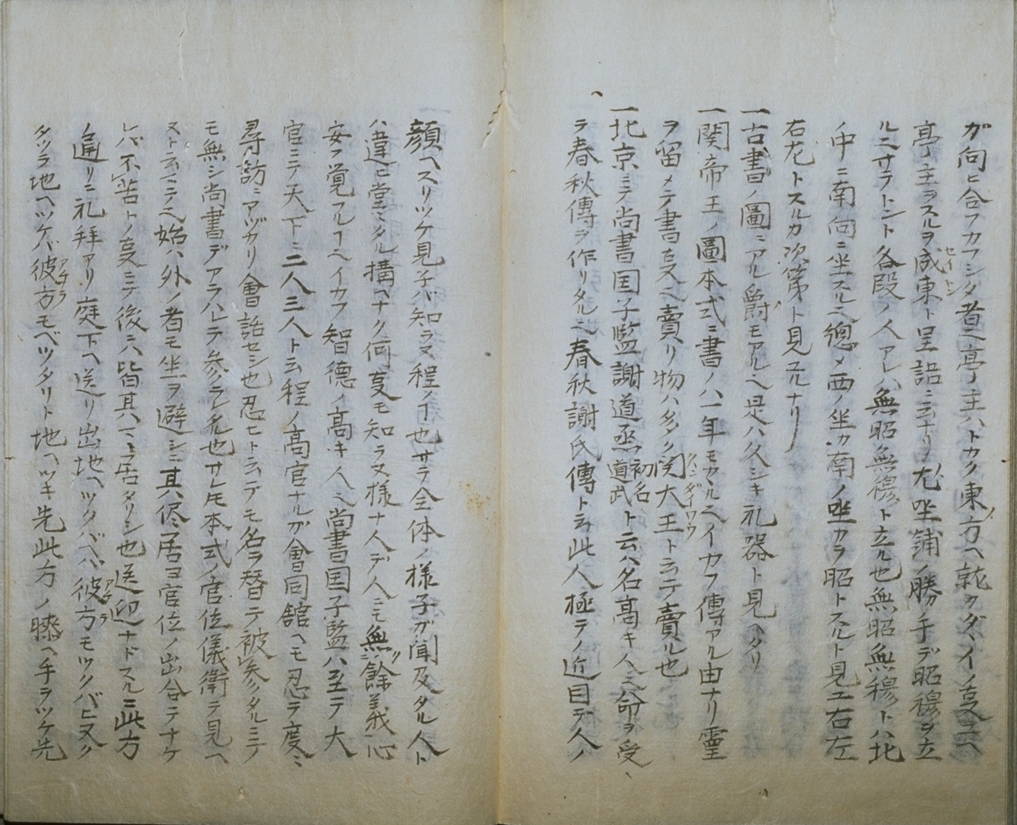 ガ向ヒ合フカフシタ者ニ亭主ハトカク東方ヘ就クダイノ
亭主ヲスルヲ成東ト呈詰ニ云ナリ尤坐舗ノ勝手デ昭穆ヲ立
ルニサラトント各段ノ人アレハ無昭無穆ト立ル也無昭無穆トハ北
ノ中ニ南向ニ坐スルヘ總メ西ノ坐カ南ノ坐カラ昭トスルト見エ右左
右尤トスルカ次第ト見エルナリ
一古書ノ圖ニアル爵モアルヘ是ハ久シキ礼器ト見ヘタリ
一関帝王ノ圖本式ニ書ノハ一年モカヽルヘイカフ傳アル由ナリ霊
ヲ留メテ書タ又ハ賣リ物ハ多ク関大王ト云テ賣ル也
一北京ニテ尚書国子監謝道丞初名道武ト云ハ名高キ人ニ命ヲ受
テ春秋傳ヲ作リタルヘ春秋謝氏傳ト云此人極テノ近目デ人ノ
顔ヘスリツケ見子バ知ラヌ程ノ丁也サテ全体ノ様子ガ聞及タル人ト
ハ違ヒ堂々タル構ヘナク何叓モ知ラヌ様ナ人デ人ニモ無餘義心
安ク覚フルナヘイカフ智徳ノ高キ人ヘ尚書国子監ハ至テ大
官ニテ天下ニ二人三人ト云程ノ高官ナルガ會同館ヘモ忍テ度々
尋訪ニアヅカリ會詣セシ也忍ヒト云テモ名ヲ替テ被参タルニテ
モ無シ尚書デアラハレテ参ラルヽ也サレドモ本式ノ官位儀衛ヲ見ヘ
ヌト云ニテヘ始ハ外ノ者モ坐ヲ避シニ其侭居ヨ官位ノ出合テナケ
レバ不苦トノ叓ニテ後ニハ皆其ハヽニ居タリシ也送迎ナドスルニ此方
ノ通リニ礼拜アリ庭下ヘ送リ出地ヘツクバヘバ彼方モツクバヒ又タ
タツラ地ヘツケバ彼方モベツタリト地ヘツキ先此方ノ膝ヘ手ヲツケ先